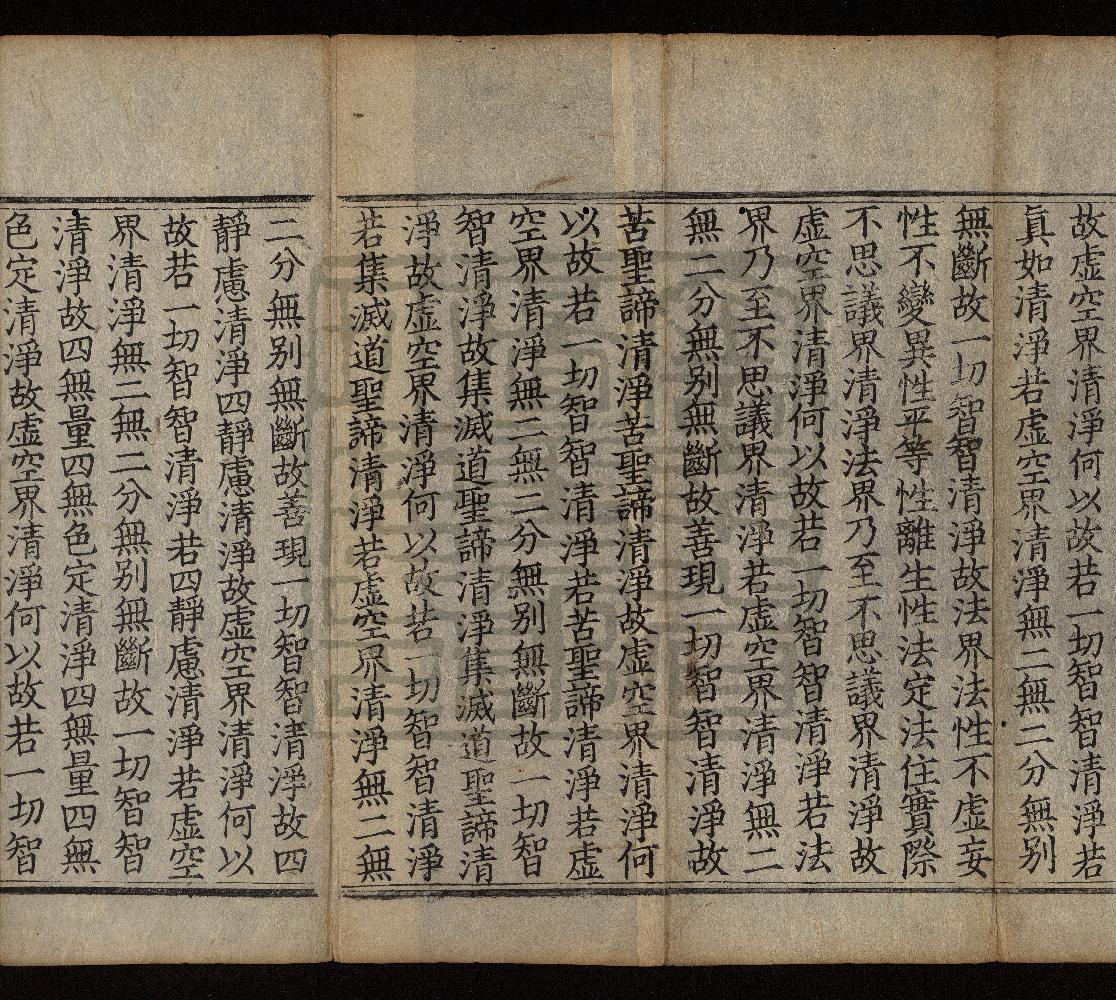 故虚空界清淨何以故若一切智智清淨若
真如清淨若虚空界清淨無二無二分無別
無斷故一切智智清淨故法界法性不虚妄
性不變異性平等性離生性法定法住實際
不思議界清淨法界乃至不思議界清淨故
虚空界清淨何以故若一切智智清淨若法
界乃至不思議界清淨若虚空界清淨無二
無二分無別無斷故善現一切智智清淨故
苦聖諦清淨苦聖諦清淨故虚空界清淨何
以故若一切智智清淨若苦聖諦清淨若虚
空界清淨無二無二分無別無斷故一切智
智清淨故集滅道聖諦清淨集滅道聖諦清
淨故虚空界清淨何以故若一切智智清淨
若集滅道聖諦清淨若虚空界清淨無二無
二分無別無斷故善現一切智智清淨故四
靜慮清淨四靜慮清淨故虚空界清淨何以
故若一切智智清淨若四靜慮清淨若虚空
界清淨無二無二分無別無斷故一切智智
清淨故四無量四無色定清淨四無量四無
色定清淨故虚空界清淨何以故若一切智